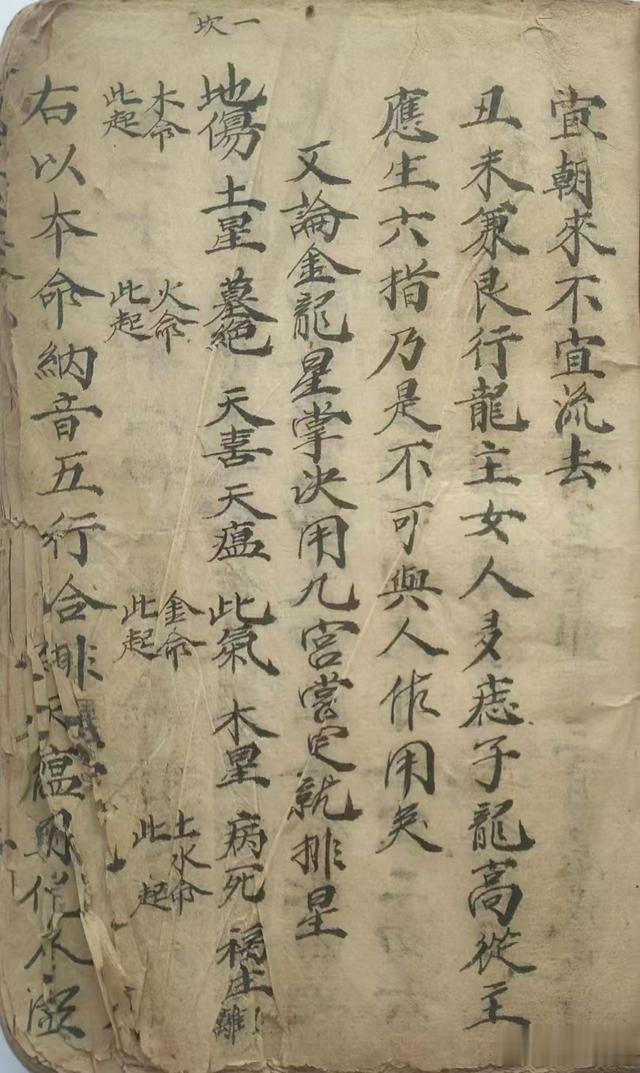 宜朝來不宜流去
丑未兼艮行龍主女人多痣子龍高從主
應生六指乃是不可與人作用矣
又論金龍星掌決用九宮嘗定就排星
一坎
地傷 土星 墓絕 天喜 天瘟 此氣 木星 病死 福生 離
木命 此起
火命 此起
金命 此起
土水命 此起
右以本命納音五行合排天瘟